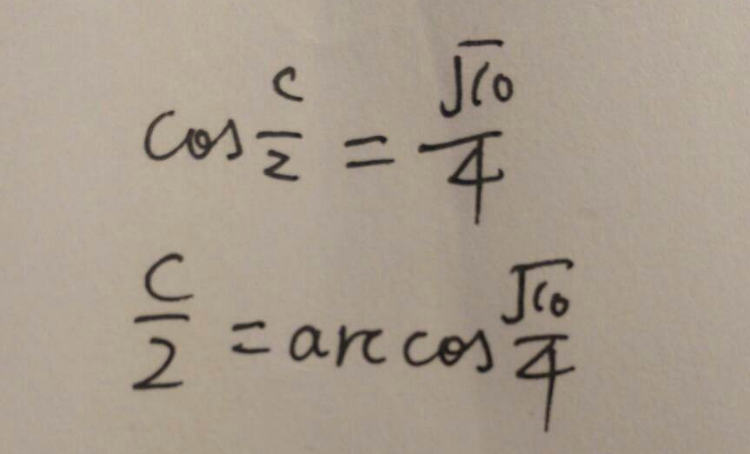 cos C/2 = √10/4
C/2 = arc cos √10/4